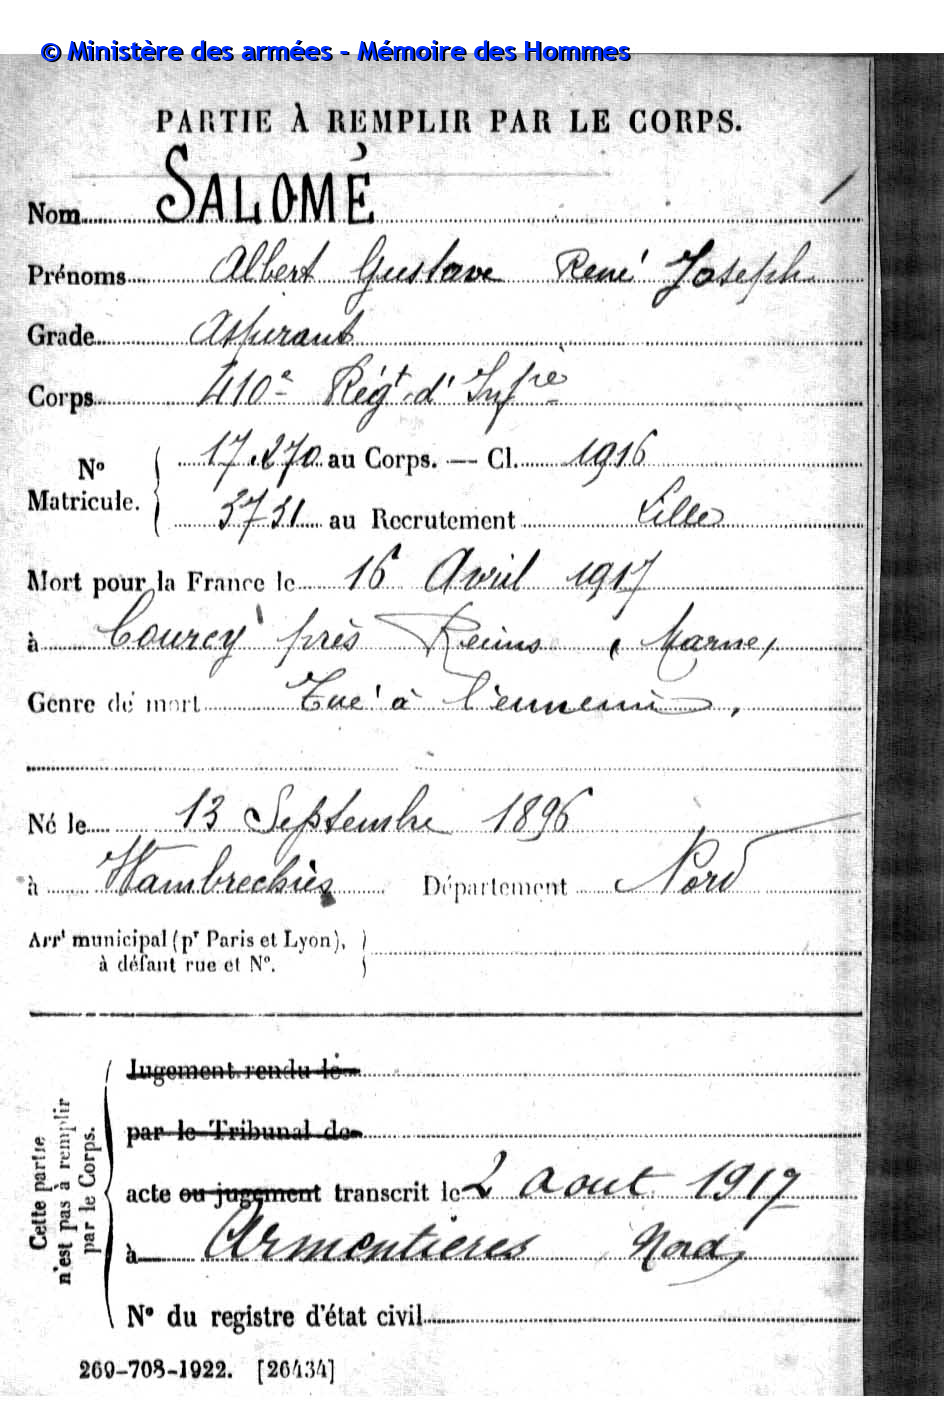 © Ministère des armées - Mémoire des Hommes
PARTIE À REMPLIR PAR LE CORPS.
Nom SALOMÉ
Prénoms Albert Gustave René Joseph
Grade Aspirant
Corps 410e Régt d'Infie
No Matricule. 17.270 au Corps. — Cl. 1916
3731 au Recrutement Lille
Mort pour la France le 16 Avril 1917
à Courcy près Reims (Marne)
Genre de mort Tué à l'ennemi.
Né le 13 Septembre 1896
à Wambrechies Département Nord
Arrt municipal (pr Paris et Lyon),
à défaut rue et No.
Cette partie
n'est pas à remplir
par le Corps.
Jugement rendu le
par le Tribunal de
acte ou jugement transcrit le 2 aout 1917
à Armentières Nord
No du registre d'état civil
269-708-1922. [26434]